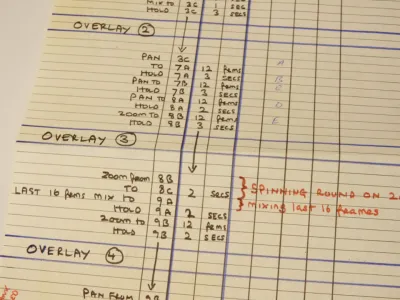 MIX TO 2C 1 SECS
HOLD 2C 3 SECS
OVERLAY 2
PAN 3C
TO 7A 12 frms
HOLD 7A 3 SECS
PAN TO 7B 12 frms
HOLD 7B 3 SECS
PAN TO 8A 12 frms
HOLD 8A 2 SECS
ZOOM TO 8B 12 frms
HOLD 8B 3 SECS
A
B
C
D
E
OVERLAY 3
ZOOM from 8B
TO 8C 2 SECS
LAST 16 frms MIX TO 9A
HOLD 9A 2 SECS
ZOOM TO 9B 12 frms
HOLD 9B 2 SECS
SPINNING ROUND ON
MIXING LAST 16 frames
OVERLAY 4
PAN FROM 9B